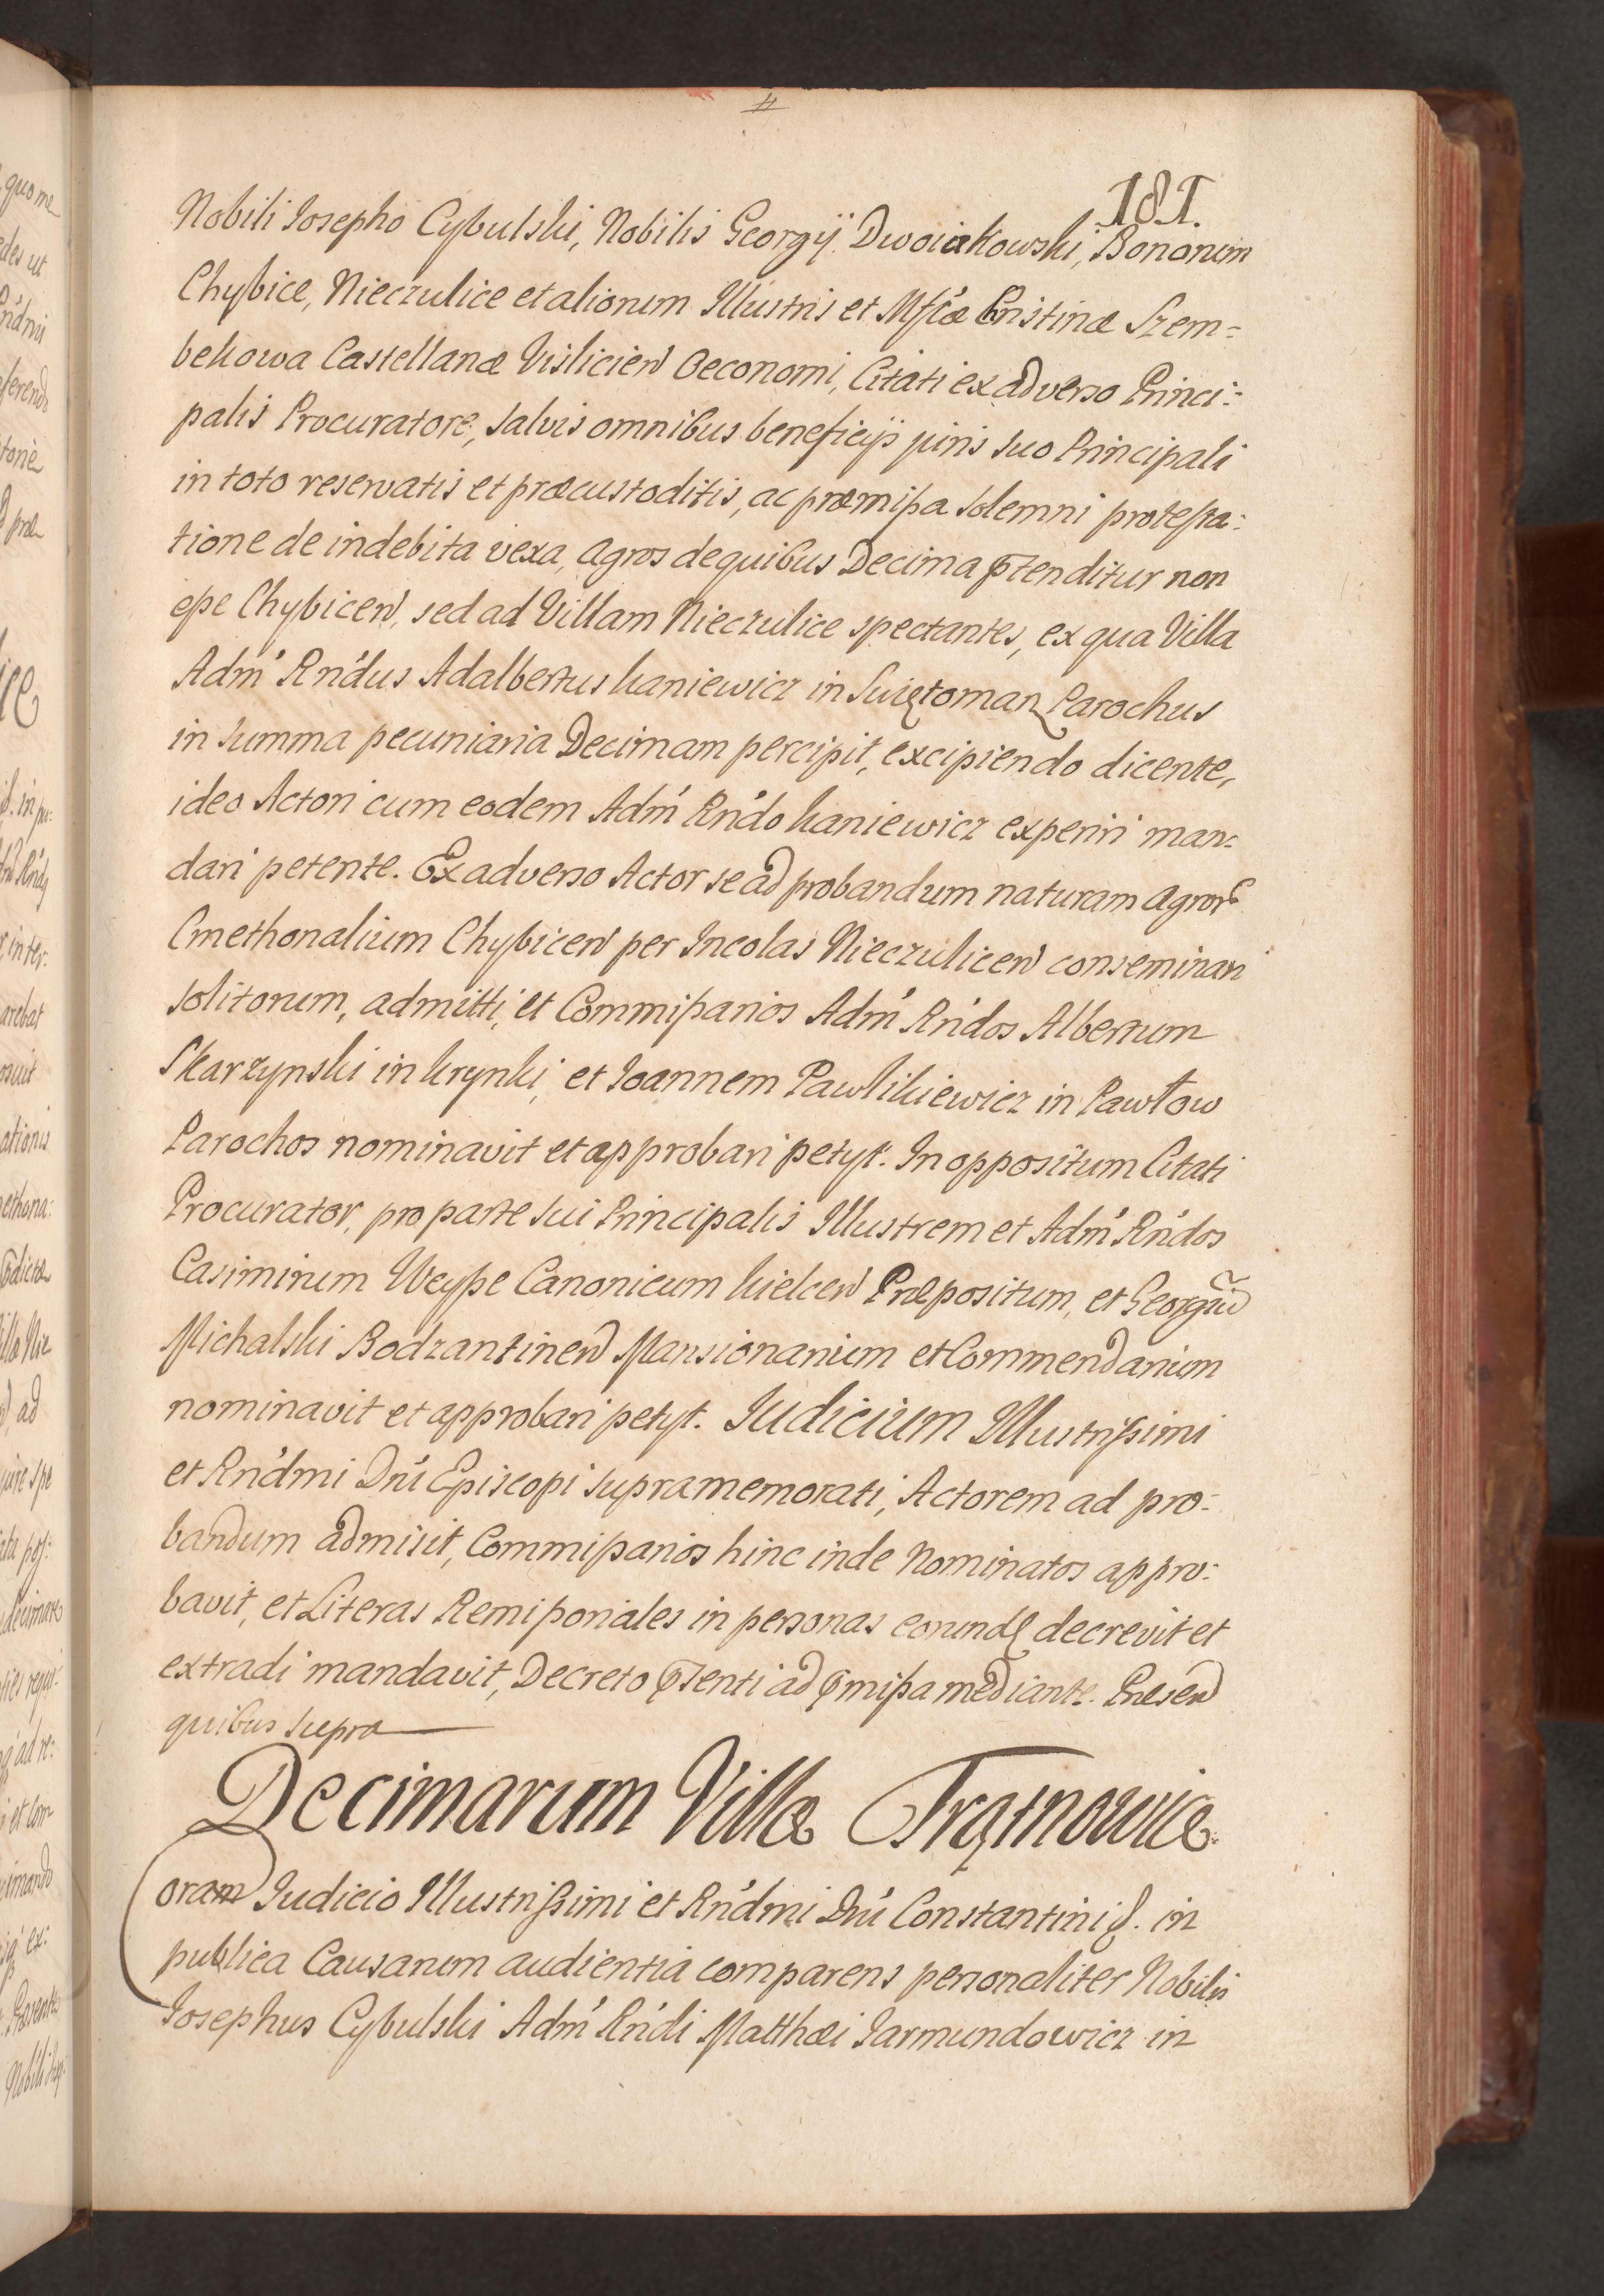 181.
Nobili Josepho Cybulski, Nobilis Georgÿ Dwoiakowski, Bonorum
Chybice, Nieczulice et aliorum Illustris et Mfcæ Cristinæ Szem=
bekowa Castellanæ Vislicień Oeconomi, Citati ex adverso Princi:
palis Procuratore, salvis omnibus beneficÿs juris suo Principali
in toto reservatis et præcustoditis, ac præmißa solemni protesta:
tione de indebita vexa, agros de quibus Decima p̃tenditur non
eße Chybiceń, sed ad Villam Nieczulice spectantes, ex qua Villa
Adm̃ Rńdus Adalbertus Kaniewicz in Swiętomarz Parochus
in summa pecuniaria Decimam percipit, excipiendo dicente,
ideo Actori cum eodem Adm̃ Rńdo Kaniewicz experiri man=
dari petente. Ex adverso Actor se ad probandum naturam Agror
Cmethonalium Chybiceń per Incolas Nieczuliceń conseminari
solitorum, admitti, et Commißarios Adm̃ Rńdos Albertum
Skarzynski in Krynki, et Joannem Pawlikiewicz in Pawłow
Parochos nominavit et approbari petyt. In oppositum Citati
Procurator, pro parte sui Principalis Illustrem et Adm̃ Rńdos
Casimirum Weyße Canonicum Kielceń Præpositum, et Georgiũ
Michalski Bodzantineń Mansionarium et Commendarium
nominavit et approbari petyt. Judicium Illustrißimi
et Rńdmi Dńi Episcopi supramemorati, Actorem ad pro:
bandum admisit, Commißarios hinc inde Nominatos appro:
bavit, et Literas Remißoriales in personas eorundę decrevit et
extradi mandavit, Decreto p̃senti ad p̃mißa mediante. Præseń
quibus supra
Decimarum Villæ Trątnowice
Coram Judicio Illustrißimi et Rńdmi Dńi Constantini &. in
publica Causarum audientia comparens personaliter Nobilis
Josephus Cybulski Adm̃ Rńdi Matthæi Jarmundowicz in